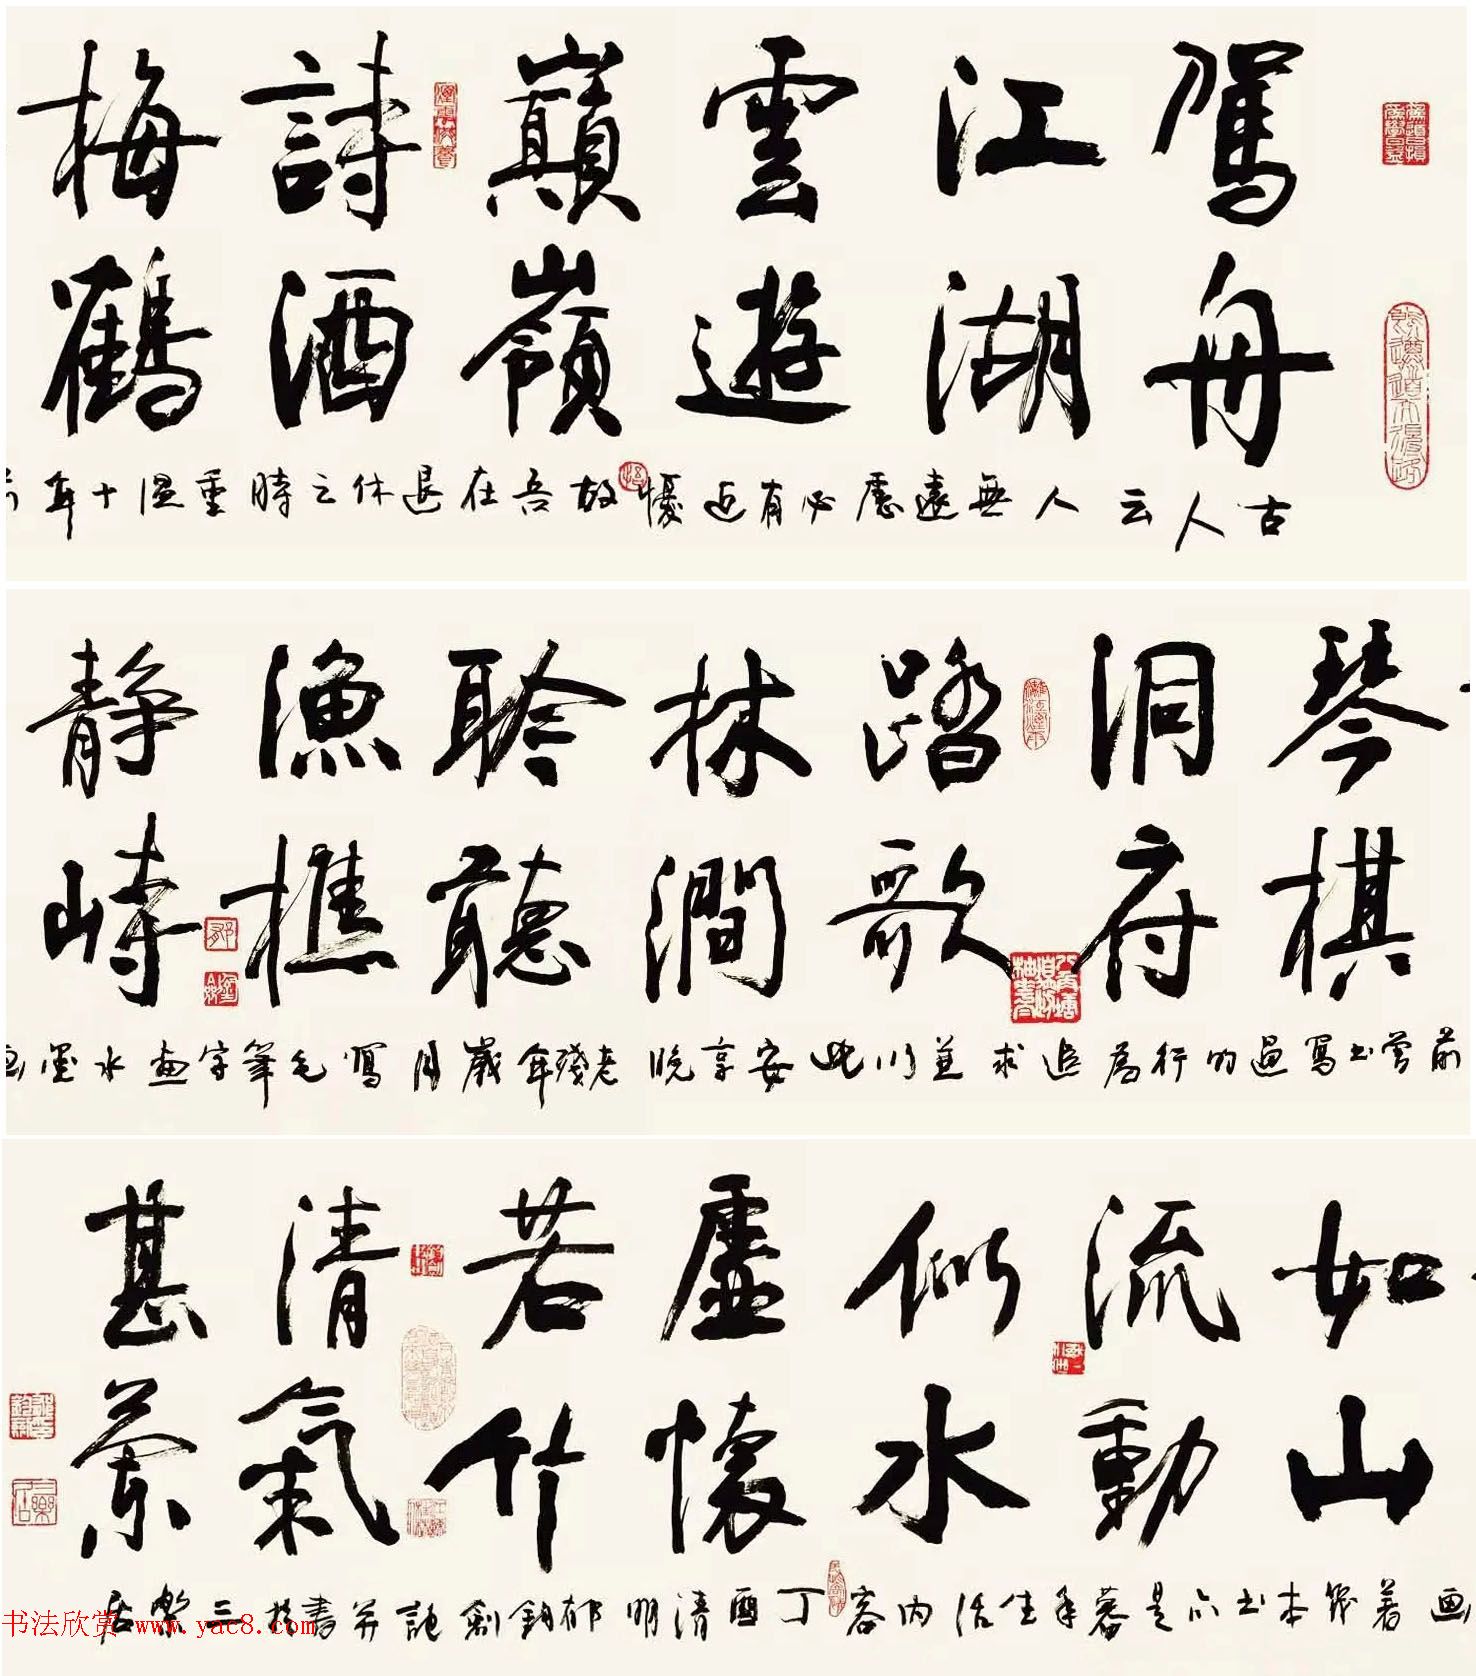 駕舟
江湖
雲遊
巔嶺
詩酒
梅鶴
古人云人無遠慮必有近懮故吾在退休之時重温十年前
琴棋
洞府
踏歌
林澗
聆聽
漁樵
静峙
前曾书寫過的行為追求並以此安享晚老殘年歲月寫毛筆字畫水墨画
如山
流動
似水
虚懷
若竹
清氣
甚蘭
画着 本 亦是暮年生活内容丁酉清明郁钧劍記并書於三樂居
书法欣赏 www.yac8.com